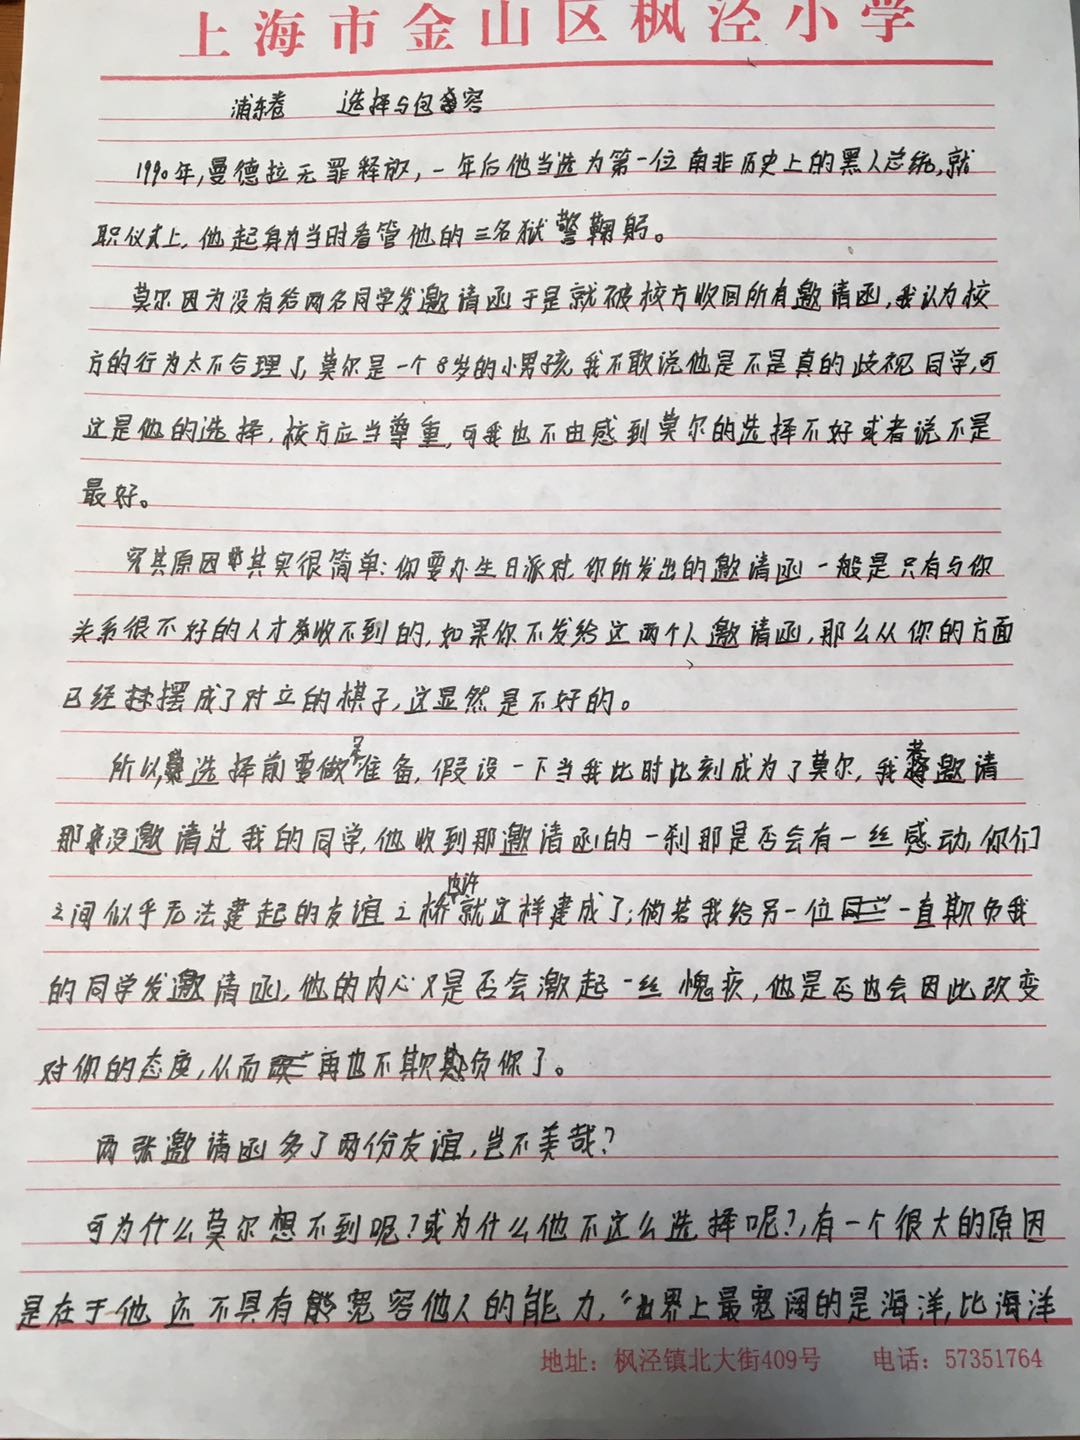 上海市金山区枫泾小学
浦东卷 选择与包容
1990年,曼德拉无罪释放,一年后他当选为第一位南非历史上的黑人总统,就
职仪式上,他起身为当时看管他的三名狱警鞠躬。
莫尔因为没有给两名同学发邀请函于是就被校方收回所有邀请函,我认为校
方的行为太不合理了,莫尔是一个8岁的小男孩,我不敢说他是不是真的歧视同学,可
这是他的选择,校方应当尊重,可我也不由感到莫尔的选择不好或者说不是
最好。
究其原因其实很简单:你要办生日派对,你所发出的邀请函一般是只有与你
关系很不好的人才收不到的,如果你不发给这两个人邀请函,那么从你的方面
已经摆成了对立的棋子,这显然是不好的。
所以,选择前要做足准备,假设一下当我此时此刻成为了莫尔,我若邀请
那没邀请过我的同学,他收到那邀请函的一刹那是否会有一丝感动,你们
之间似乎无法建起的友谊之桥也许就这样建成了;倘若我给另一位一直欺负我
的同学发邀请函,他的内心又是否会激起一丝愧疚,他是否也会因此改变
对你的态度,从而再也不欺负你了。
两张邀请函多了两份友谊,岂不美哉?
可为什么莫尔想不到呢?或为什么他不这么选择呢?,有一个很大的原因
是在于他还不具有能宽容他人的能力,“世界上最宽阔的是海洋,比海洋
地址:枫泾镇北大街409号 电话:57351764